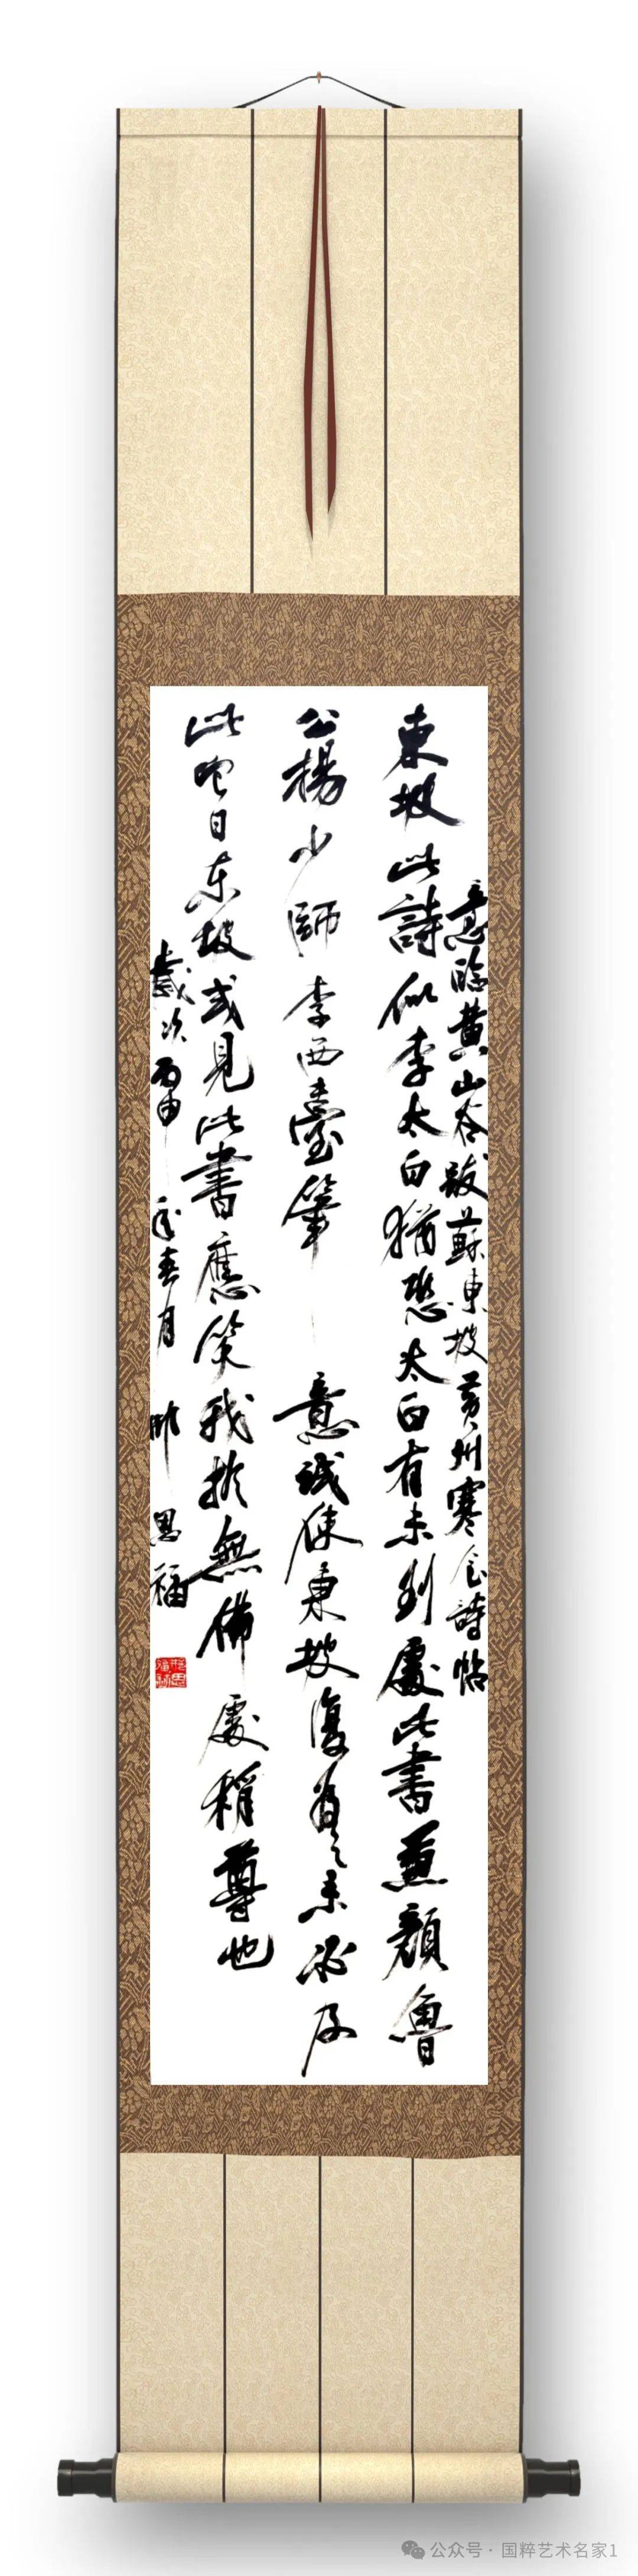 意臨黄山谷跋蘇東坡黄州寒食詩帖
東坡此詩似李太白猶恐太白有未到處此書兼顏魯
公楊少師李西臺筆意試使東坡復為之未必及
此它日东坡或見此書應笑我於無佛處稱尊也
歲次丙申年春月
公众号·国粹艺术名家1